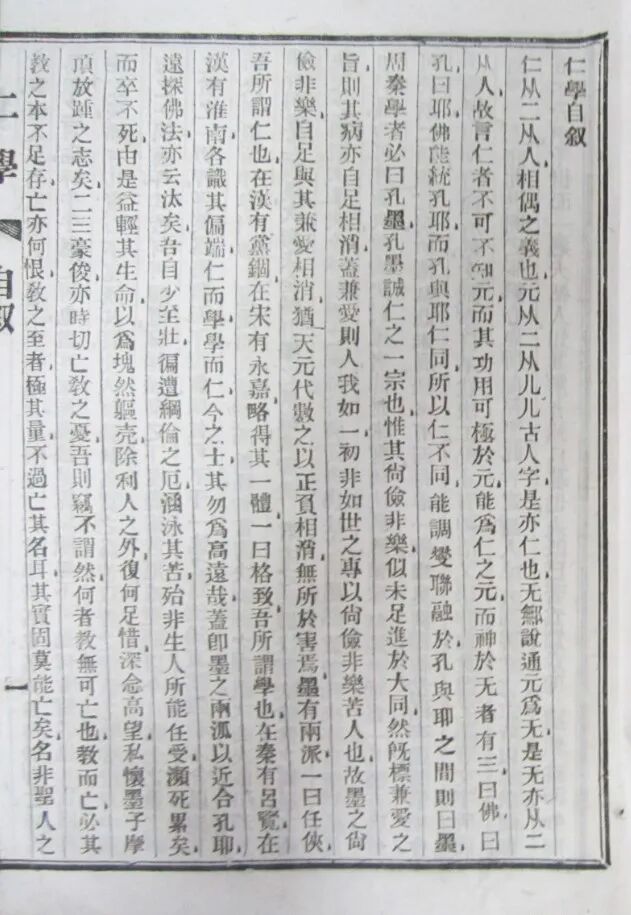 仁學自叙
仁从二从人相偶之義也元从二从儿儿古人字是亦仁也无鄦說通元爲无是无亦从二
从人故言仁者不可不知元而其功用可極於元能爲仁之元而神於无者有三曰佛曰
孔曰耶佛能統孔耶而孔與耶仁同所以仁不同能調燮聯融於孔與耶之間則曰墨
周秦學者必曰孔墨孔墨誠仁之一宗也惟其尙儉非樂似未足進於大同然旣標兼愛之
旨則其病亦自足相消蓋兼愛則人我如一初非如世之專以尙儉非樂苦人也故墨之尙
儉非樂自足與其兼愛相消猶天元代數之以正負相消無所於害焉墨有兩派一曰任俠
吾所謂仁也在漢有黨錮在宋有永嘉略得其一體一曰格致吾所謂學也在秦有呂覽在
漢有淮南各識其偏端仁而學學而仁今之士其勿爲高遠哉蓋卽墨之兩派以近合孔耶
遠探佛法亦云汰矣吾自少至壯徧遭綱倫之厄涵泳其苦殆非生人所能任受瀕死累矣
而卒不死由是益輕其生命以爲塊然軀壳除利人之外復何足惜深念高望私懷墨子摩
頂放踵之志矣二三豪俊亦時切亡敎之憂吾則竊不謂然何者教無可亡也教而亡必其
敎之本不足存亡亦何恨敎之至者極其量不過亡其名耳其實固莫能亡矣名非聖人之
仁學 自叙 一